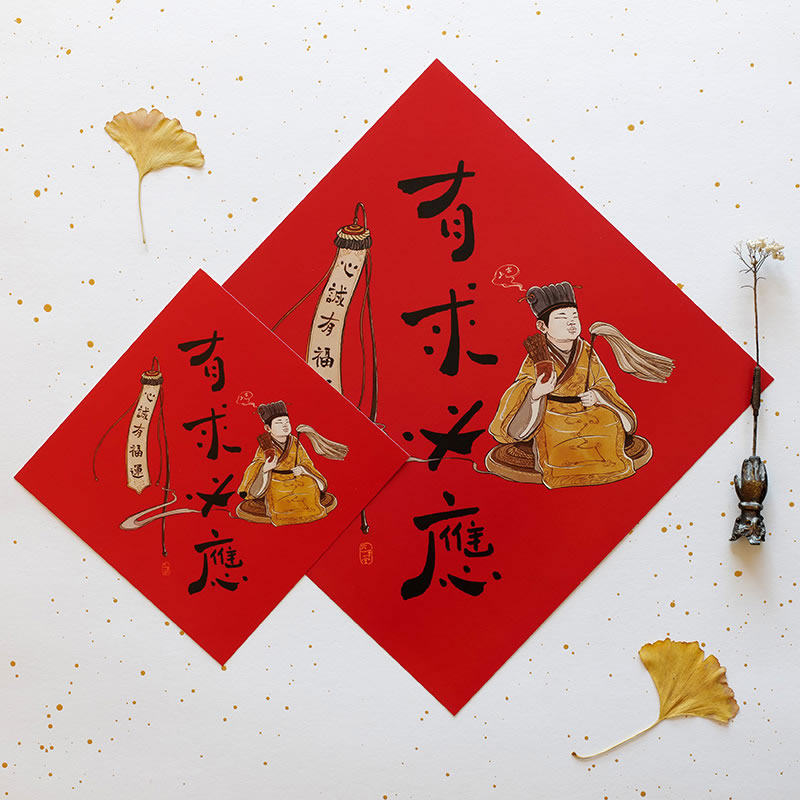 有求必應
心誠有福
有求必應
心誠有福運